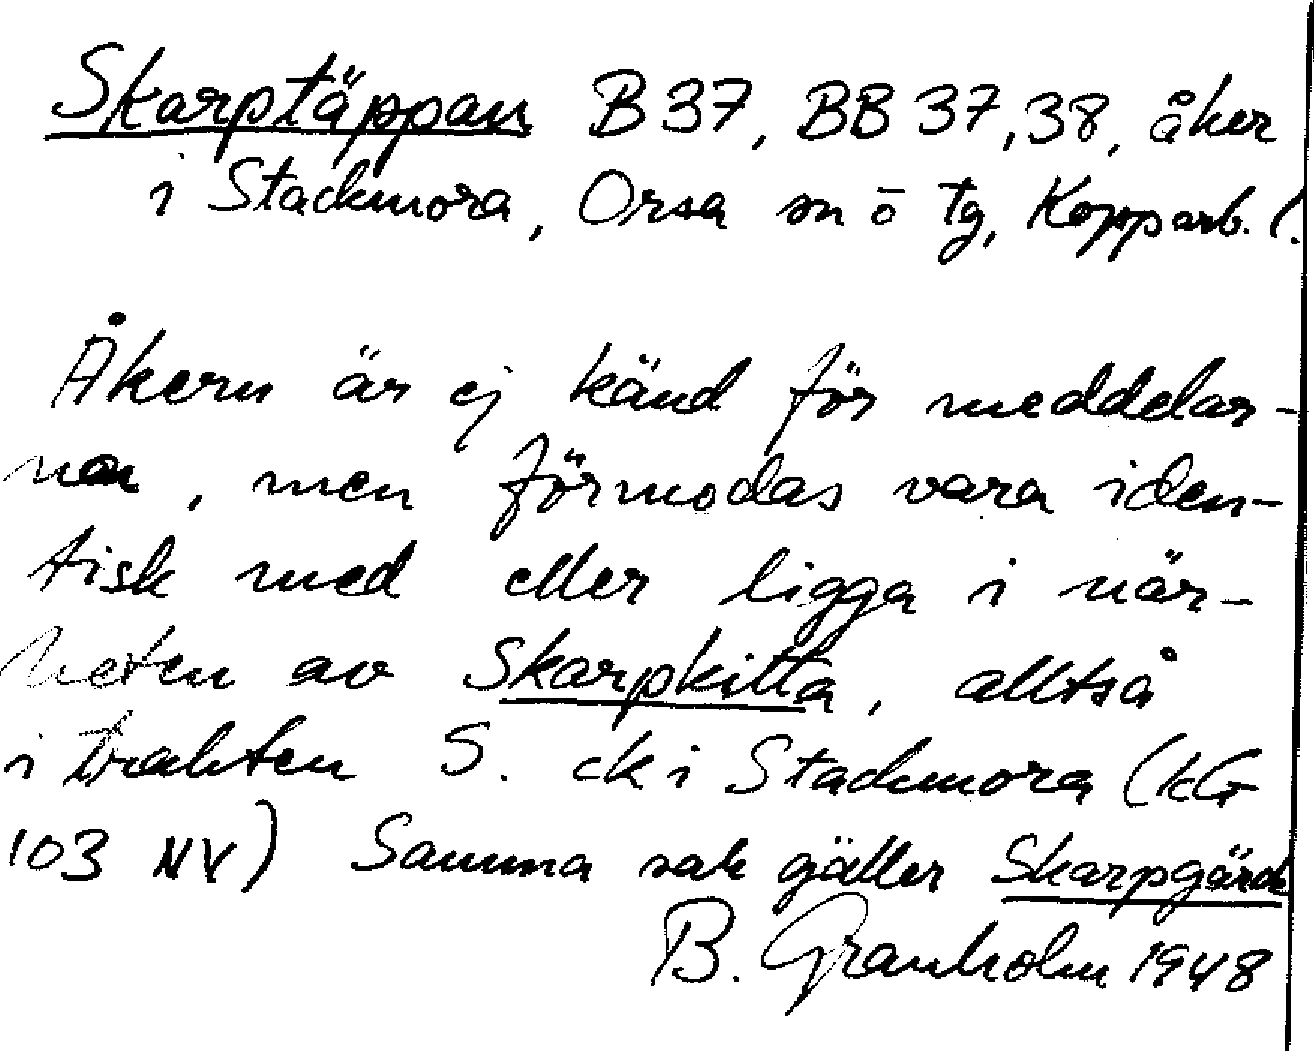 Skarptäppan B 37, BB 37, 38, åker
i Stackmora, Orsa sn ō tg, Kopparb. l.
Åkern är ej känd för meddelar-
na, men förmodas vara iden-
tisk med eller ligga i när-
heten av Skarpkitta, alltså
i trakten S. ck i Stackmora (kG
103 NV) Samma sak gäller Skarpgärde
B. Granholm 1948